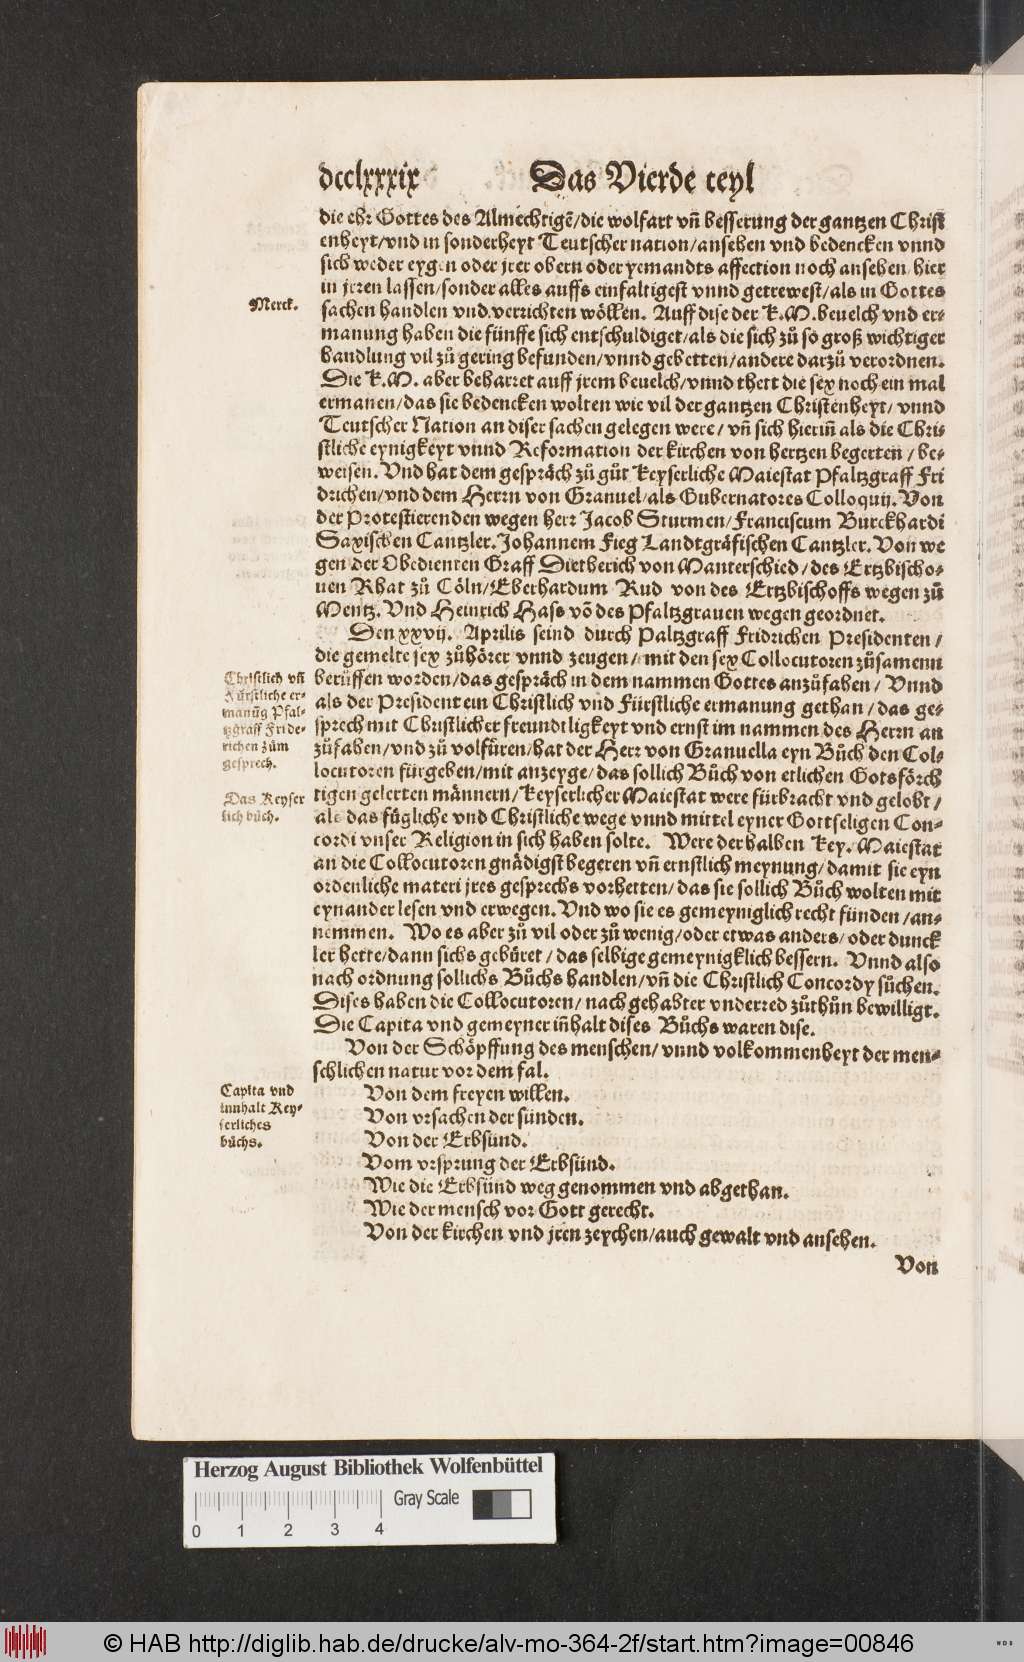 dcclxxxix Das Vierde teyl
die ehr Gottes des Almechtigẽ/die wolfart vñ besserung der gantzen Christ
enheyt/vnd in sonderheyt Teutscher nation/ansehen vnd bedencken vnnd
sich weder eygen oder jrer obern oder yemandts affection noch ansehen/hier
in jrren lassen/sonder alles auffs einfaltigest vnnd getrewest/als in Gottes
Merck.
sachen handlen vnd verrichten wöllen. Auff dise der K.M. beuelch vnd er⸗
manung haben die fünffe sich entschuldiget/als die sich zů so groß wichtiger
handlung vil zů gering befunden/vnnd gebetten/andere darzů verordnen.
Die K.M. aber beharret auff jrem beuelch/vnnd thett die sex noch ein mal
ermanen/das sie bedencken wolten wie vil der gantzen Christenheyt/ vnnd
Teutscher Nation an diser sachen gelegen were/ vñ sich hieriñ als die Chri⸗
stliche eynigkeyt vnnd Reformation der kirchen von hertzen begerten/ be⸗
weisen. Vnd hat dem gespräch zů gůt Keyserliche Maiestat Pfaltzgraff Fri
drichen/vnd dem Herrn von Granuel/als Gubernatores Colloquij. Von
der Protestierenden wegen herr Jacob Sturmen/Franciscum Burckhardi
Saxischen Cantzler. Johannem Fieg Landtgräfischen Cantzler. Von we
gen der Obedienten Graff Dietherich von Manterschied/des Ertzbischo⸗
uen Rhat zů Cöln/Eberhardum Rud von des Ertzbischoffs wegen zů
Mentz. Vnd Heinrich Hass võ des Pfaltzgrauen wegen geordnet.
Den xxvij. Aprilis seind durch Paltzgraff Fridrichen Presidenten/
die gemelte sex zůhörer vnnd zeugen/mit den sex Collocutoren zůsamenn
Christlich vñ
Fürstliche er⸗
manũg Pfal⸗
tzgraff Fride⸗
richen zům
gesprech.
berüffen worden/das gespräch in dem nammen Gottes anzůfahen/ Vnnd
als der President ein Christlich vnd Fürstliche ermanung gethan/das ge⸗
sprech mit Christlicher freundtligkeyt vnd ernst im nammen des Herrn an
zůfahen/vnd zů volfüren/hat der Herr von Granuella eyn Bůch den Col⸗
locutoren fürgeben/mit anzeyge/das sollich Bůch von etlichen Gotsförch
Das Keyser
lich bůch.
tigen gelerten männern/Keyserlicher Maiestat were fürbracht vnd gelobt/
als das fůgliche vnd Christliche wege vnnd mittel eyner Gottseligen Con⸗
cordi vnser Religion in sich haben solte. Were derhalben Key. Maiestat
an die Collocutoren gnädigst begeren vñ ernstlich meynung/damit sie eyn
ordenliche materi jres gesprechs vorhetten/das sie sollich Bůch wolten mit
eynander lesen vnd erwegen. Vnd wo sie es gemeyniglich recht fünden/an⸗
nemmen. Wo es aber zů vil oder zů wenig/oder etwas anders/oder dunck
ler hette/dann sichs gebüret/das selbige gemeynigklich bessern. Vnnd also
nach ordnung sollichs Bůchs handlen/vñ die Christlich Concordy sůchen.
Dises haben die Collocutoren/nach gehabter vnderred zůthůn bewilligt.
Die Capita vnd gemeyner iñhalt dises Bůchs waren dise.
Von der Schöpffung des menschen/vnnd volkommenheyt der men⸗
schlichen natur vor dem fal.
Capita vnd
innhalt Key⸗
serliches
bůchs.
Von dem freyen willen.
Von vrsachen der sünden.
Von der Erbsünd.
Vom vrsprung der Erbsünd.
Wie die Erbsünd weg genommen vnd abgethan.
Wie der mensch vor Gott gerecht.
Von der kirchen vnd jren zeychen/auch gewalt vnd ansehen.
Von
Herzog August Bibliothek Wolfenbüttel
Gray Scale
0 1 2 3 4
© HAB http://diglib.hab.de/drucke/alv-mo-364-2f/start.htm?image=00846